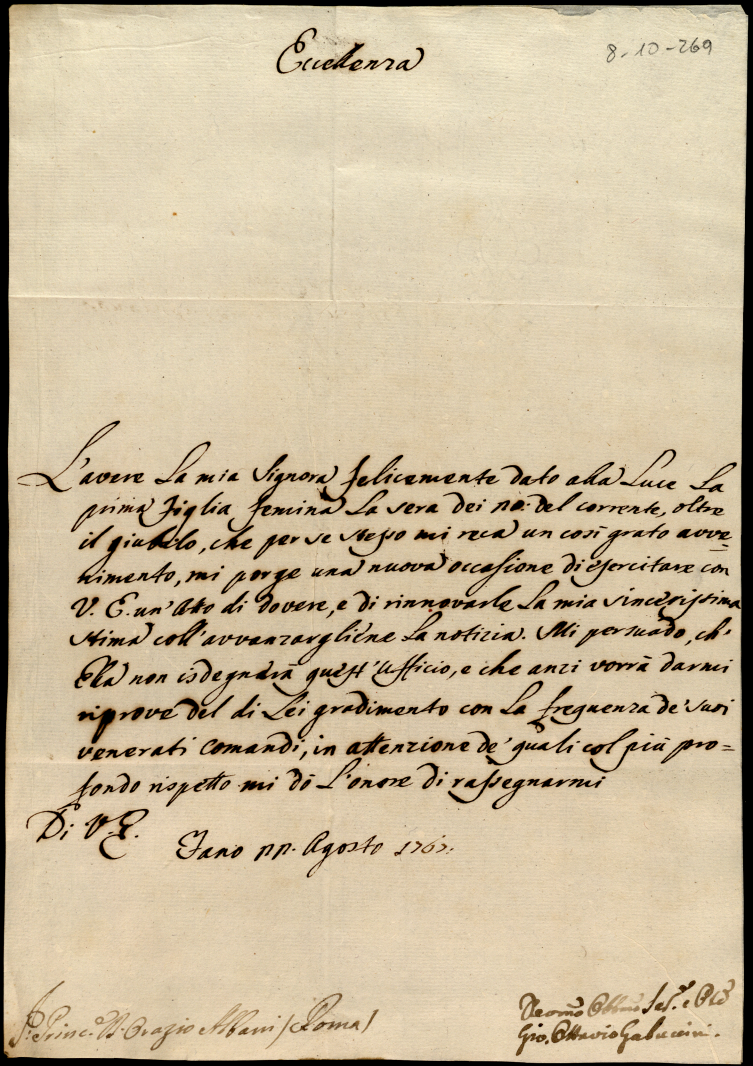 Eccellenza
8-10-269
L'avere La mia Signora felicemente dato alla Luce La
prima Figlia femina La sera dei del corrente, oltre
il giubilo, che per se stesso mi reca un così grato avve=
nimento, mi porge una nuova occasione di esercitare con
V. E. un'Atto di dovere, e di rinnovarle La mia sincerissima
stima coll'avvanzargliene La notizia. Mi persuado, ch'
Ella non isdegnerà quest'Ufficio, e che anzi vorrà darmi
riprove del di Lei gradimento con La frequenza de' suoi
venerati Comandi, in attenzione de' quali col più pro=
fondo rispetto mi dò L'onore di rassegnarmi
Di V. E.
Fano Agosto 1767.
Princ.e D. Orazio Albani (Roma)
Devmo Obbmo
Gio. Ottavio Gabuccini.